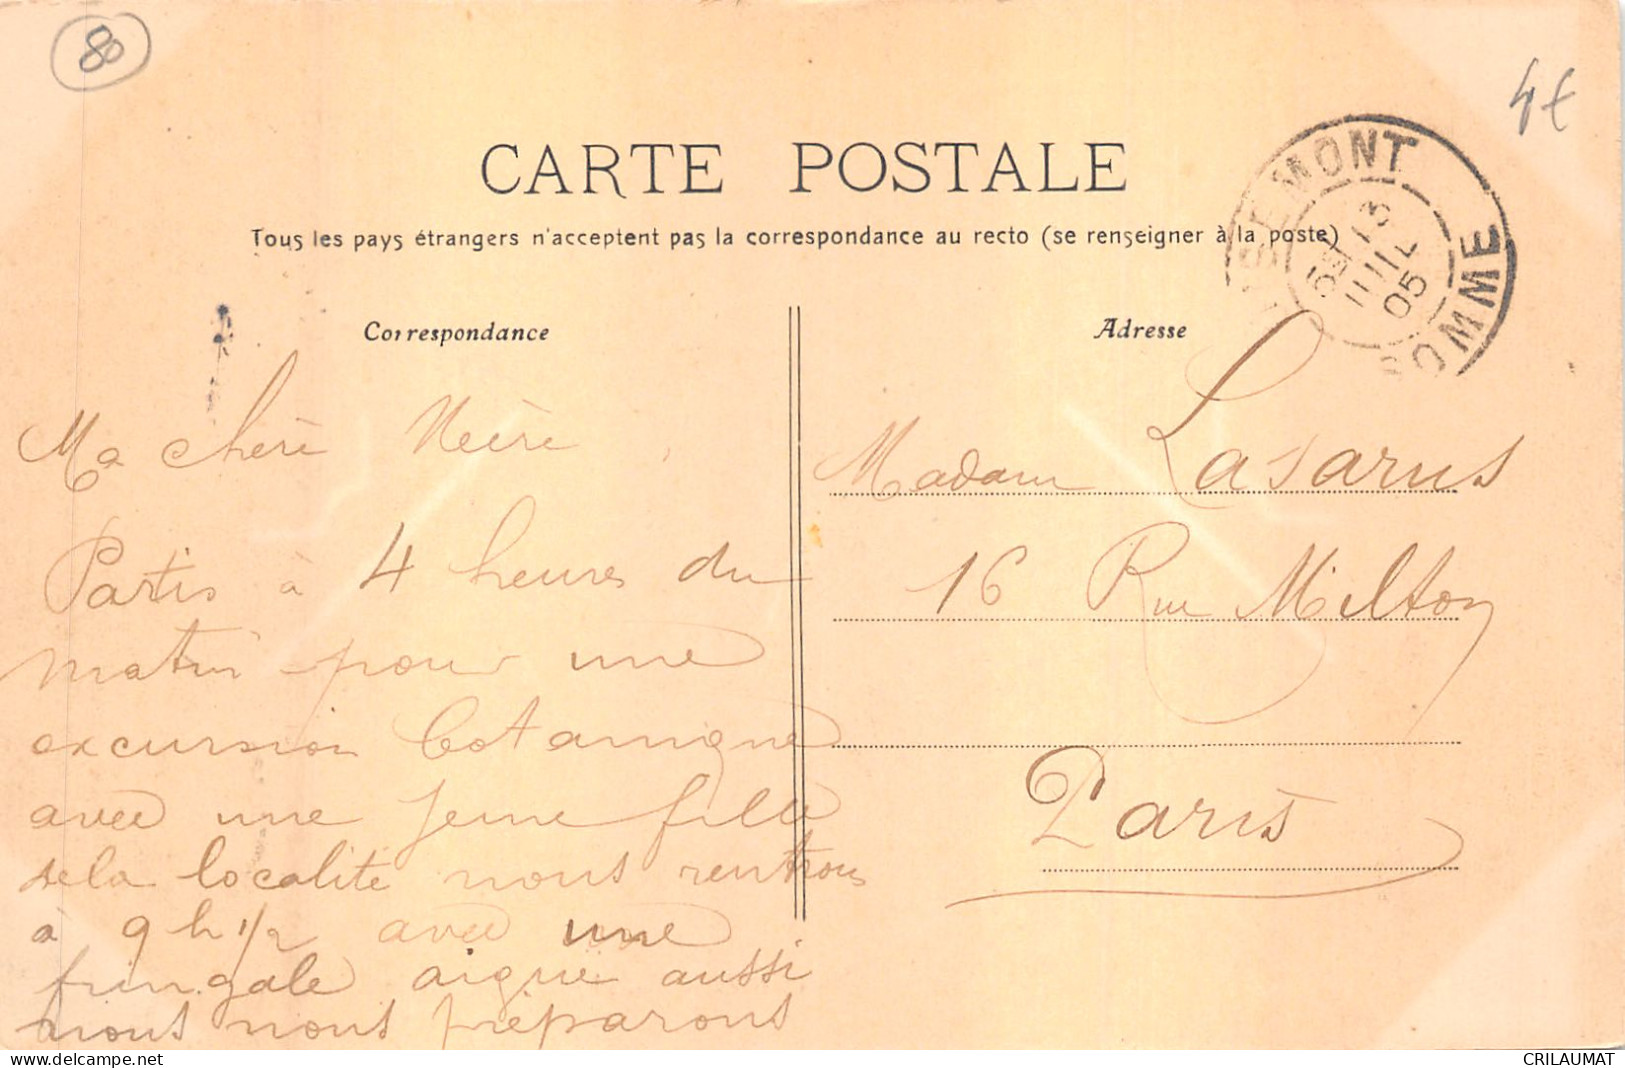 80
4€
CARTE POSTALE
Tous les pays étrangers n'acceptent pas la correspondance au recto (se renseigner à la poste)
EMONT
SOMME
13
JUIL
05
Correspondance
Ma chère
Partis à 4 heures du
matin pour une
excursion botanique
avec une jeune fille
de la localité nous rentrons
à 9 h 1/2 avec une
fringale aigue aussi
nous nous préparons
Adresse
Madame Lasarus
16 Rue Milton
Paris
www.delcampe.net
CRILAUMAT